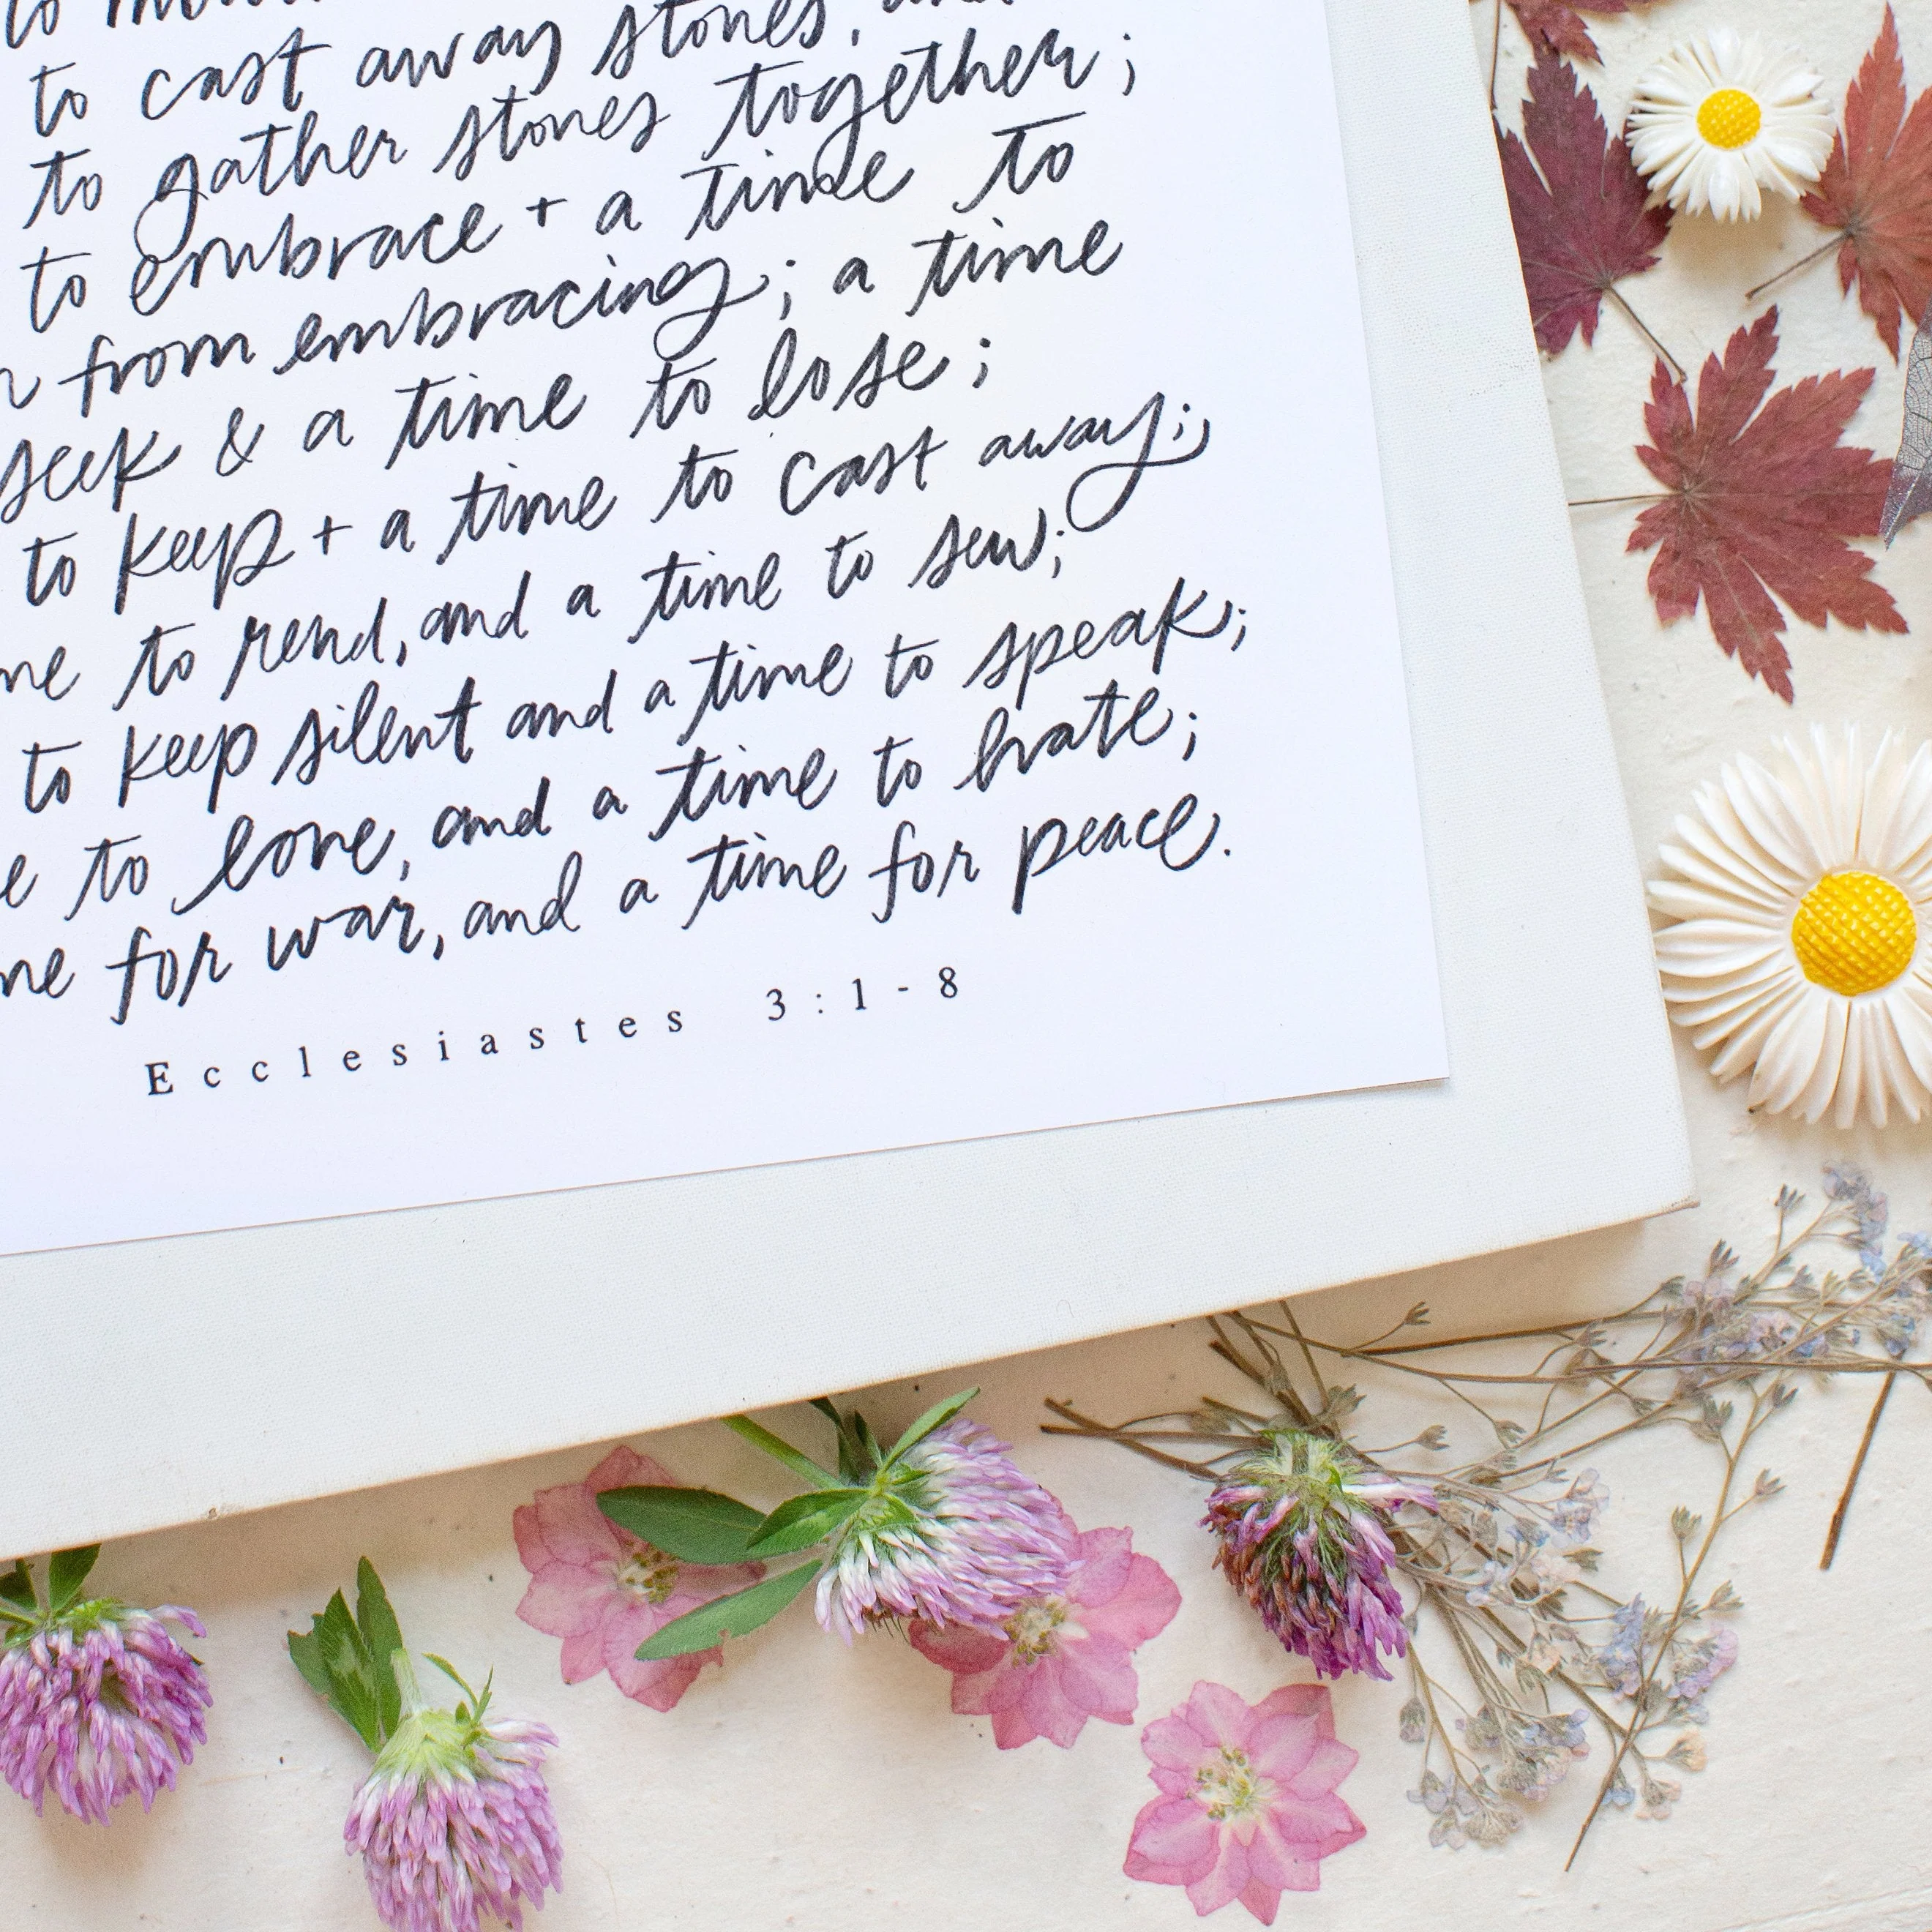 to
to cast away stones, and
to gather stones together;
to embrace + a time to
from embracing; a time
seek & a time to lose;
to keep + a time to cast away;
to rend, and a time to sew;
to keep silent and a time to speak;
to love, and a time to hate;
for war, and a time for peace.
Ecclesiastes 3:1-8